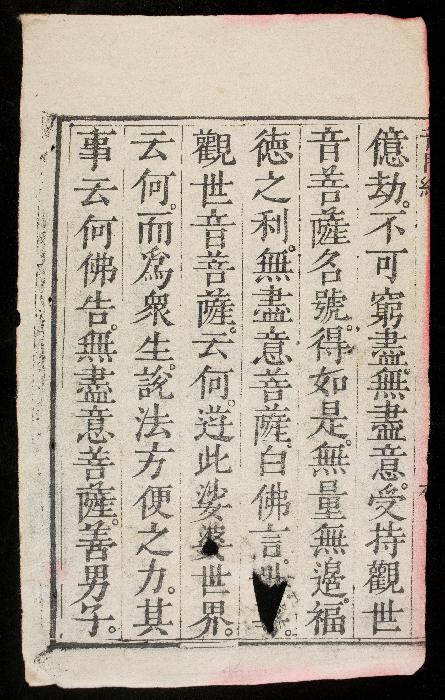 億劫。不可窮盡。無盡意。受持觀世
音菩薩名號。得如是。無量無邊。福
德之利。無盡意菩薩。白佛言。
觀世音菩薩。云何。遊此娑婆世界。
云何。而為衆生。說法方便之力。其
事云何佛告。無盡意菩薩。善男子。